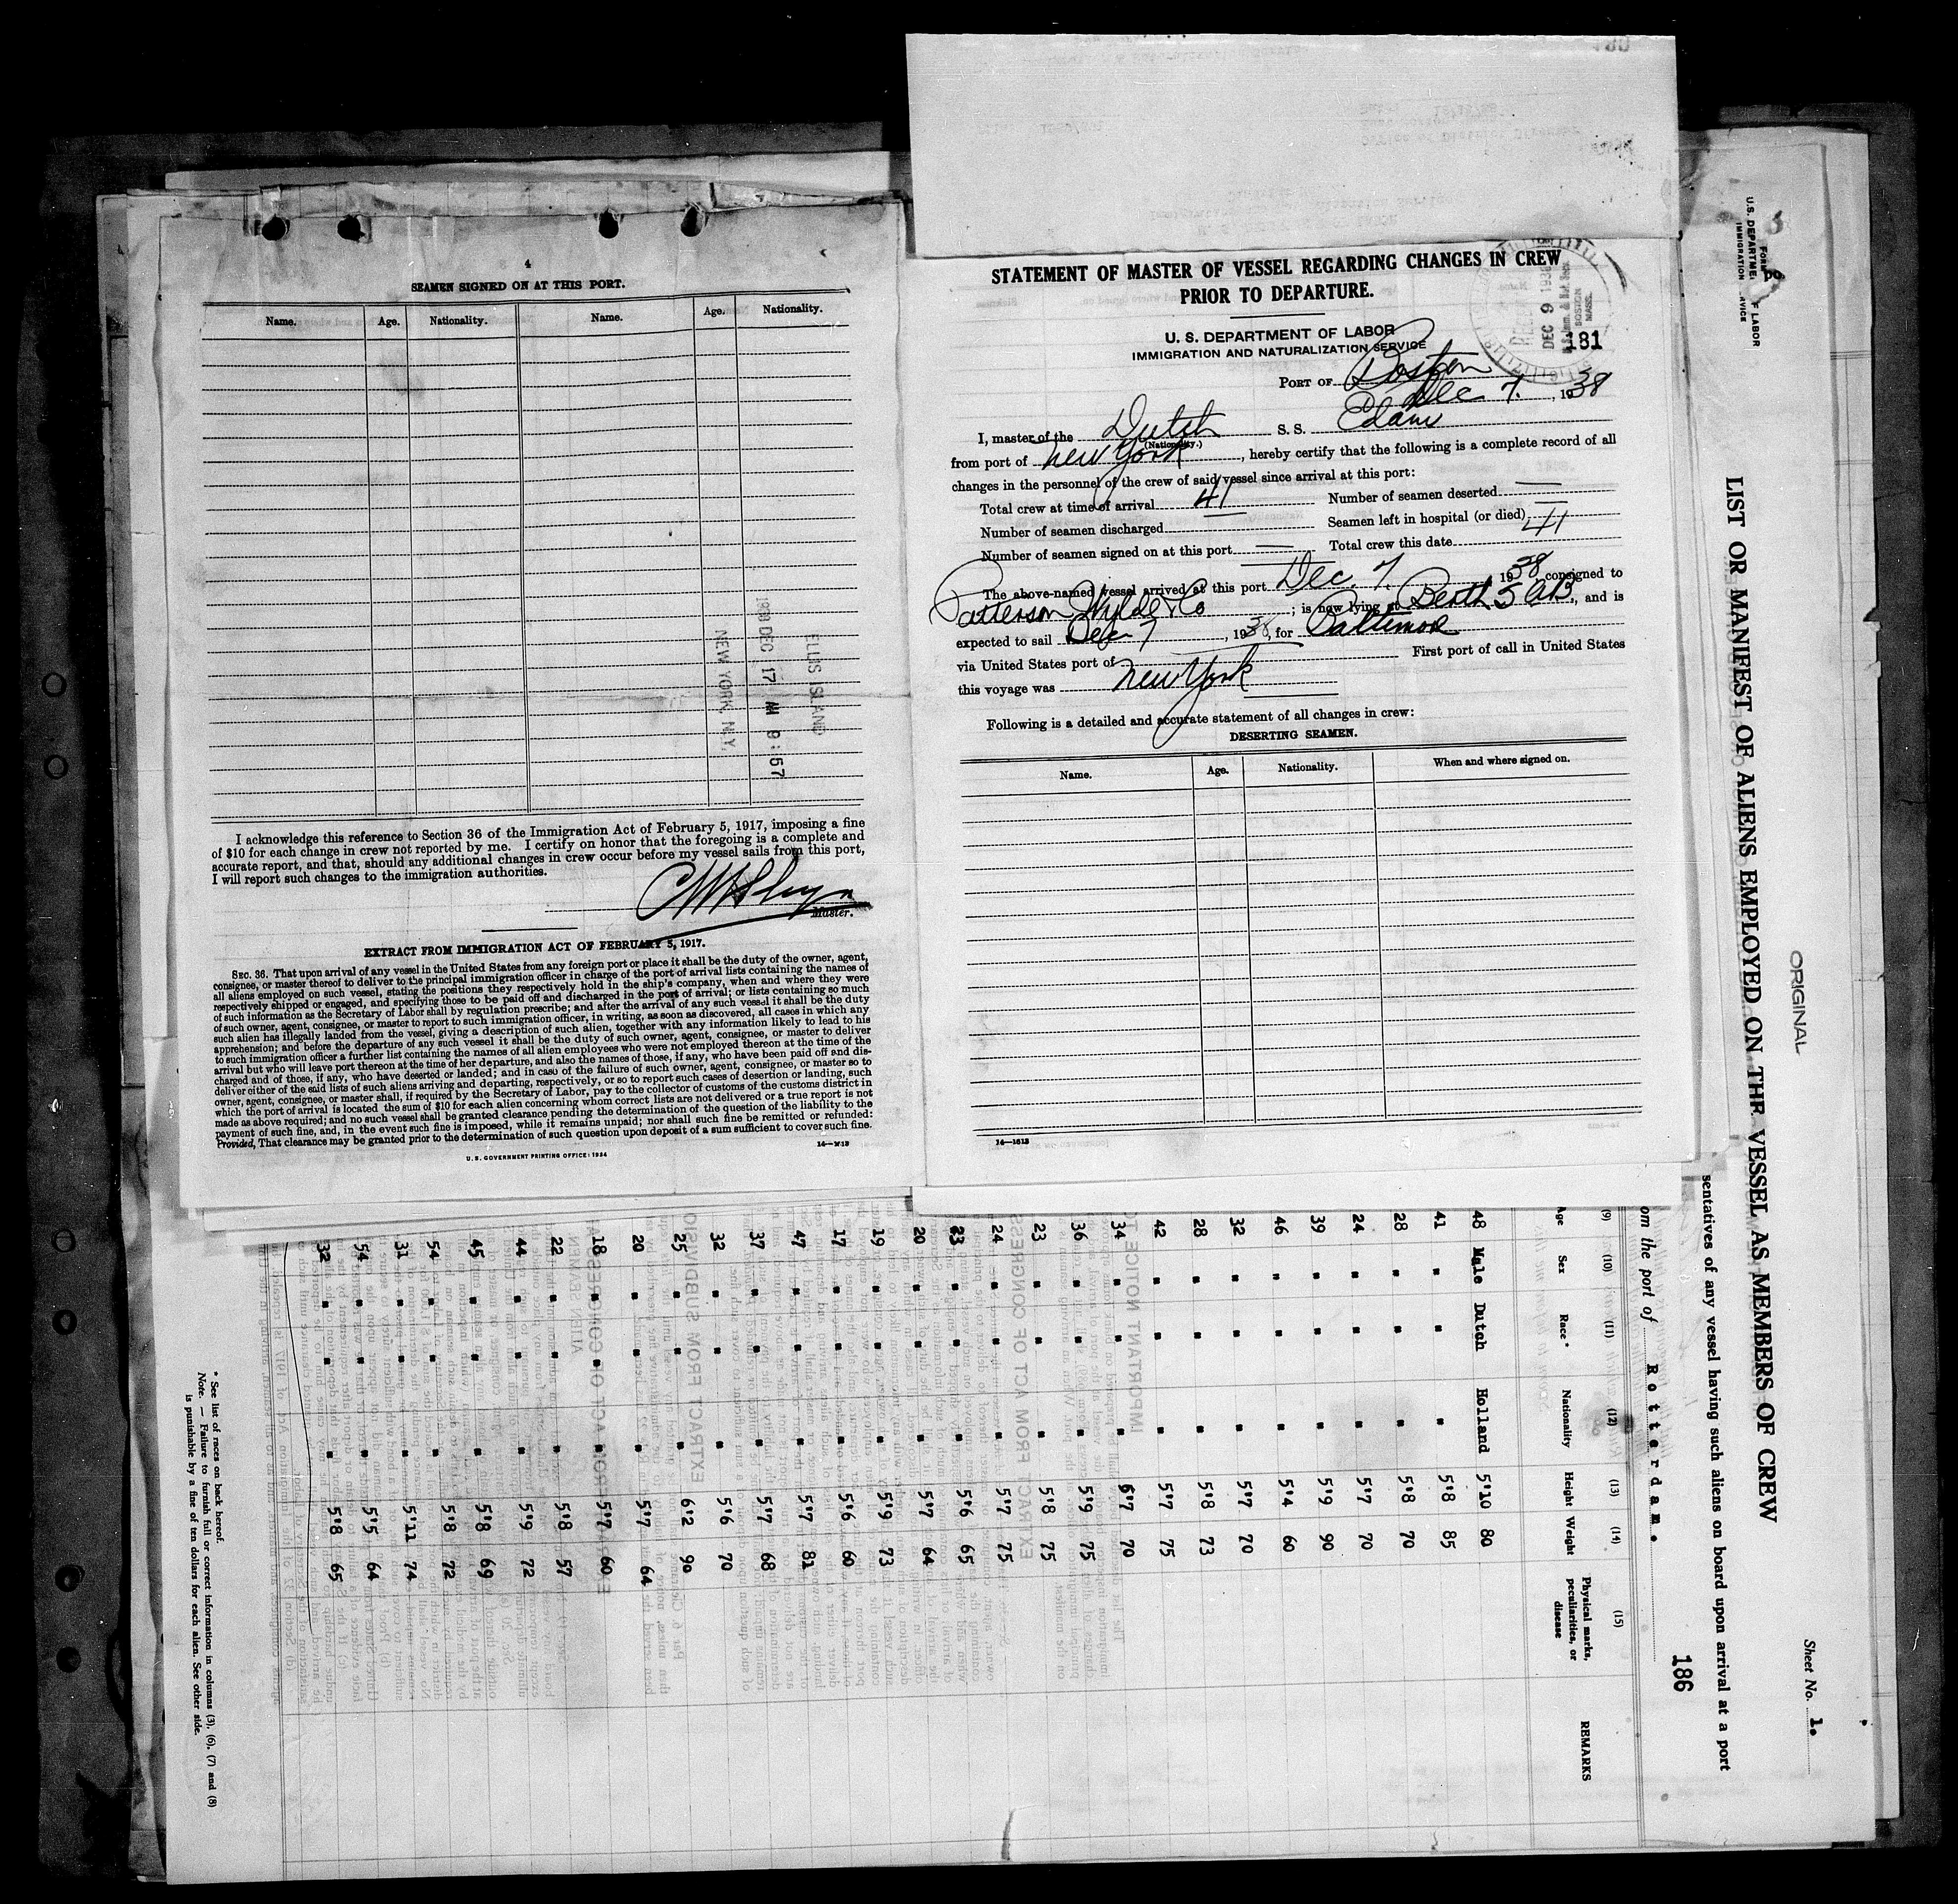 4
SEAMEN SIGNED ON AT THIS PORT.
Name. Age. Nationality. Name. Age. Nationality.
ELLIS ISLAND
1938 DEC 17 AM 9:57
NEW YORK, N.Y.
I acknowledge this reference to Section 36 of the Immigration Act of February 5, 1917, imposing a fine
of $10 for each change in crew not reported by me. I certify on honor that the foregoing is a complete and
accurate report, and that, should any additional changes in crew occur before my vessel sails from this port,
I will report such changes to the immigration authorities.
Master.
EXTRACT FROM IMMIGRATION ACT OF FEBRUARY 5, 1917.
SEC. 36. That upon arrival of any vessel in the United States from any foreign port or place it shall be the duty of the owner, agent,
consignee, or master thereof to deliver to the principal immigration officer in charge of the port of arrival lists containing the names of
all aliens employed on such vessel, stating the positions they respectively hold in the ship's company, when and where they were
respectively shipped or engaged, and specifying those to be paid off and discharged in the port of arrival; or lists containing so much
of such information as the Secretary of Labor shall by regulation prescribe; and after the arrival of any such vessel it shall be the duty
of such owner, agent, consignee, or master to report to such immigration officer, in writing, as soon as discovered, all cases in which any
such alien has illegally landed from the vessel, giving a description of such alien, together with any information likely to lead to his
apprehension; and before the departure of any such vessel it shall be the duty of such owner, agent, consignee, or master to deliver
to such immigration officer a further list containing the names of all alien employees who were not employed thereon at the time of the
arrival but who will leave port thereon at the time of her departure, and also the names of those, if any, who have been paid off and dis-
charged and of those, if any, who have deserted or landed; and in case of the failure of such owner, agent, consignee, or master so to
deliver either of the said lists of such aliens arriving and departing, respectively, or so to report such cases of desertion or landing, such
owner, agent, consignee, or master shall, if required by the Secretary of Labor, pay to the collector of customs of the customs district in
which the port of arrival is located the sum of $10 for each alien concerning whom correct lists are not delivered or a true report is not
made as above required; and no such vessel shall be granted clearance pending the determination of the question of the liability to the
payment of such fine, and, in the event such fine is imposed, while it remains unpaid; nor shall such fine be remitted or refunded:
Provided, That clearance may be granted prior to the determination of such question upon deposit of a sum sufficient to cover such fine.
U. S. GOVERNMENT PRINTING OFFICE: 1934
STATEMENT OF MASTER OF VESSEL REGARDING CHANGES IN CREW
PRIOR TO DEPARTURE.
U. S. DEPARTMENT OF LABOR
IMMIGRATION AND NATURALIZATION SERVICE
DEC 9 1938
BOSTON
MASS.
181
PORT OF Boston
Dec 7, 1938
I, master of the Dutch S. S. Edam
(Nationality.)
from port of New York, hereby certify that the following is a complete record of all
changes in the personnel of the crew of said vessel since arrival at this port:
Total crew at time of arrival 41 Number of seamen deserted —
Number of seamen discharged — Seamen left in hospital (or died) —
Number of seamen signed on at this port — Total crew this date 41
The above-named vessel arrived at this port Dec. 7, 1938, consigned to
Patterson Wylde & Co; is now lying at Berth 5 AB, and is
expected to sail Dec 7, 1938, for Baltimore
via United States port of — First port of call in United States
this voyage was New York
Following is a detailed and accurate statement of all changes in crew:
DESERTING SEAMEN.
Name. Age. Nationality. When and where signed on.
14—1613
FORM
U.S. DEPARTMENT OF LABOR
IMMIGRATION SERVICE
ORIGINAL
Sheet No. 1.
LIST OR MANIFEST OF ALIENS EMPLOYED ON THR VESSEL AS MEMBERS OF CREW
sentatives of any vessel having such aliens on board upon arrival at a port
om the port of Rotterdam.
186
(9) (10) (11) (12) (13) (14) (15)
Age Sex Race * Nationality Height Weight Physical marks, peculiarities, or disease REMARKS
48 Male Dutch Holland 5'10 80
41 " " " 5'8 85
28 " " " 5'8 70
24 " " " 5'7 70
39 " " " 5'9 90
46 " " " 5'4 60
32 " " " 5'7 70
28 " " " 5'8 73
42 " " " 5'7 75
34 " " " 6'7 70
36 " " " 5'9 75
23 " " " 5'8 75
24 " " " 5'7 75
23 " " " 5'6 65
20 " " " 5'7 64
19 " " " 5'9 73
17 " " " 5'6 60
47 " " " 5'7 81
37 " " " 5'7 68
32 " " " 5'6 70
25 " " " 6'2 90
20 " " " 5'7 64
18 " " " 5'7 60
22 " " " 5'8 57
44 " " " 5'9 72
45 " " " 5'8 69
54 " " " 5'8 72
31 " " " 5'11 74
54 " " " 5'5 64
32 " " " 5'8 65
* See list of races on back hereof.
Note. — Failure to furnish full or correct information in columns (3), (6), (7) and (8)
is punishable by a fine of ten dollars for each alien. See other side.